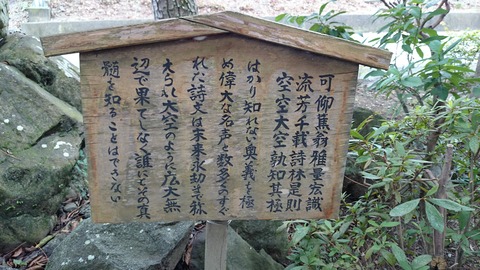 可仰蕉翁雅量宏識
流芳千載詩林是則
空空太空孰知其極
はかり知れない奥義を極
め偉大な名声と数多くのすぐ
れた詩文は未来永劫まで称
えられ大空のように広大無
辺で果てしなく誰にもその真
髄を知ることはできない